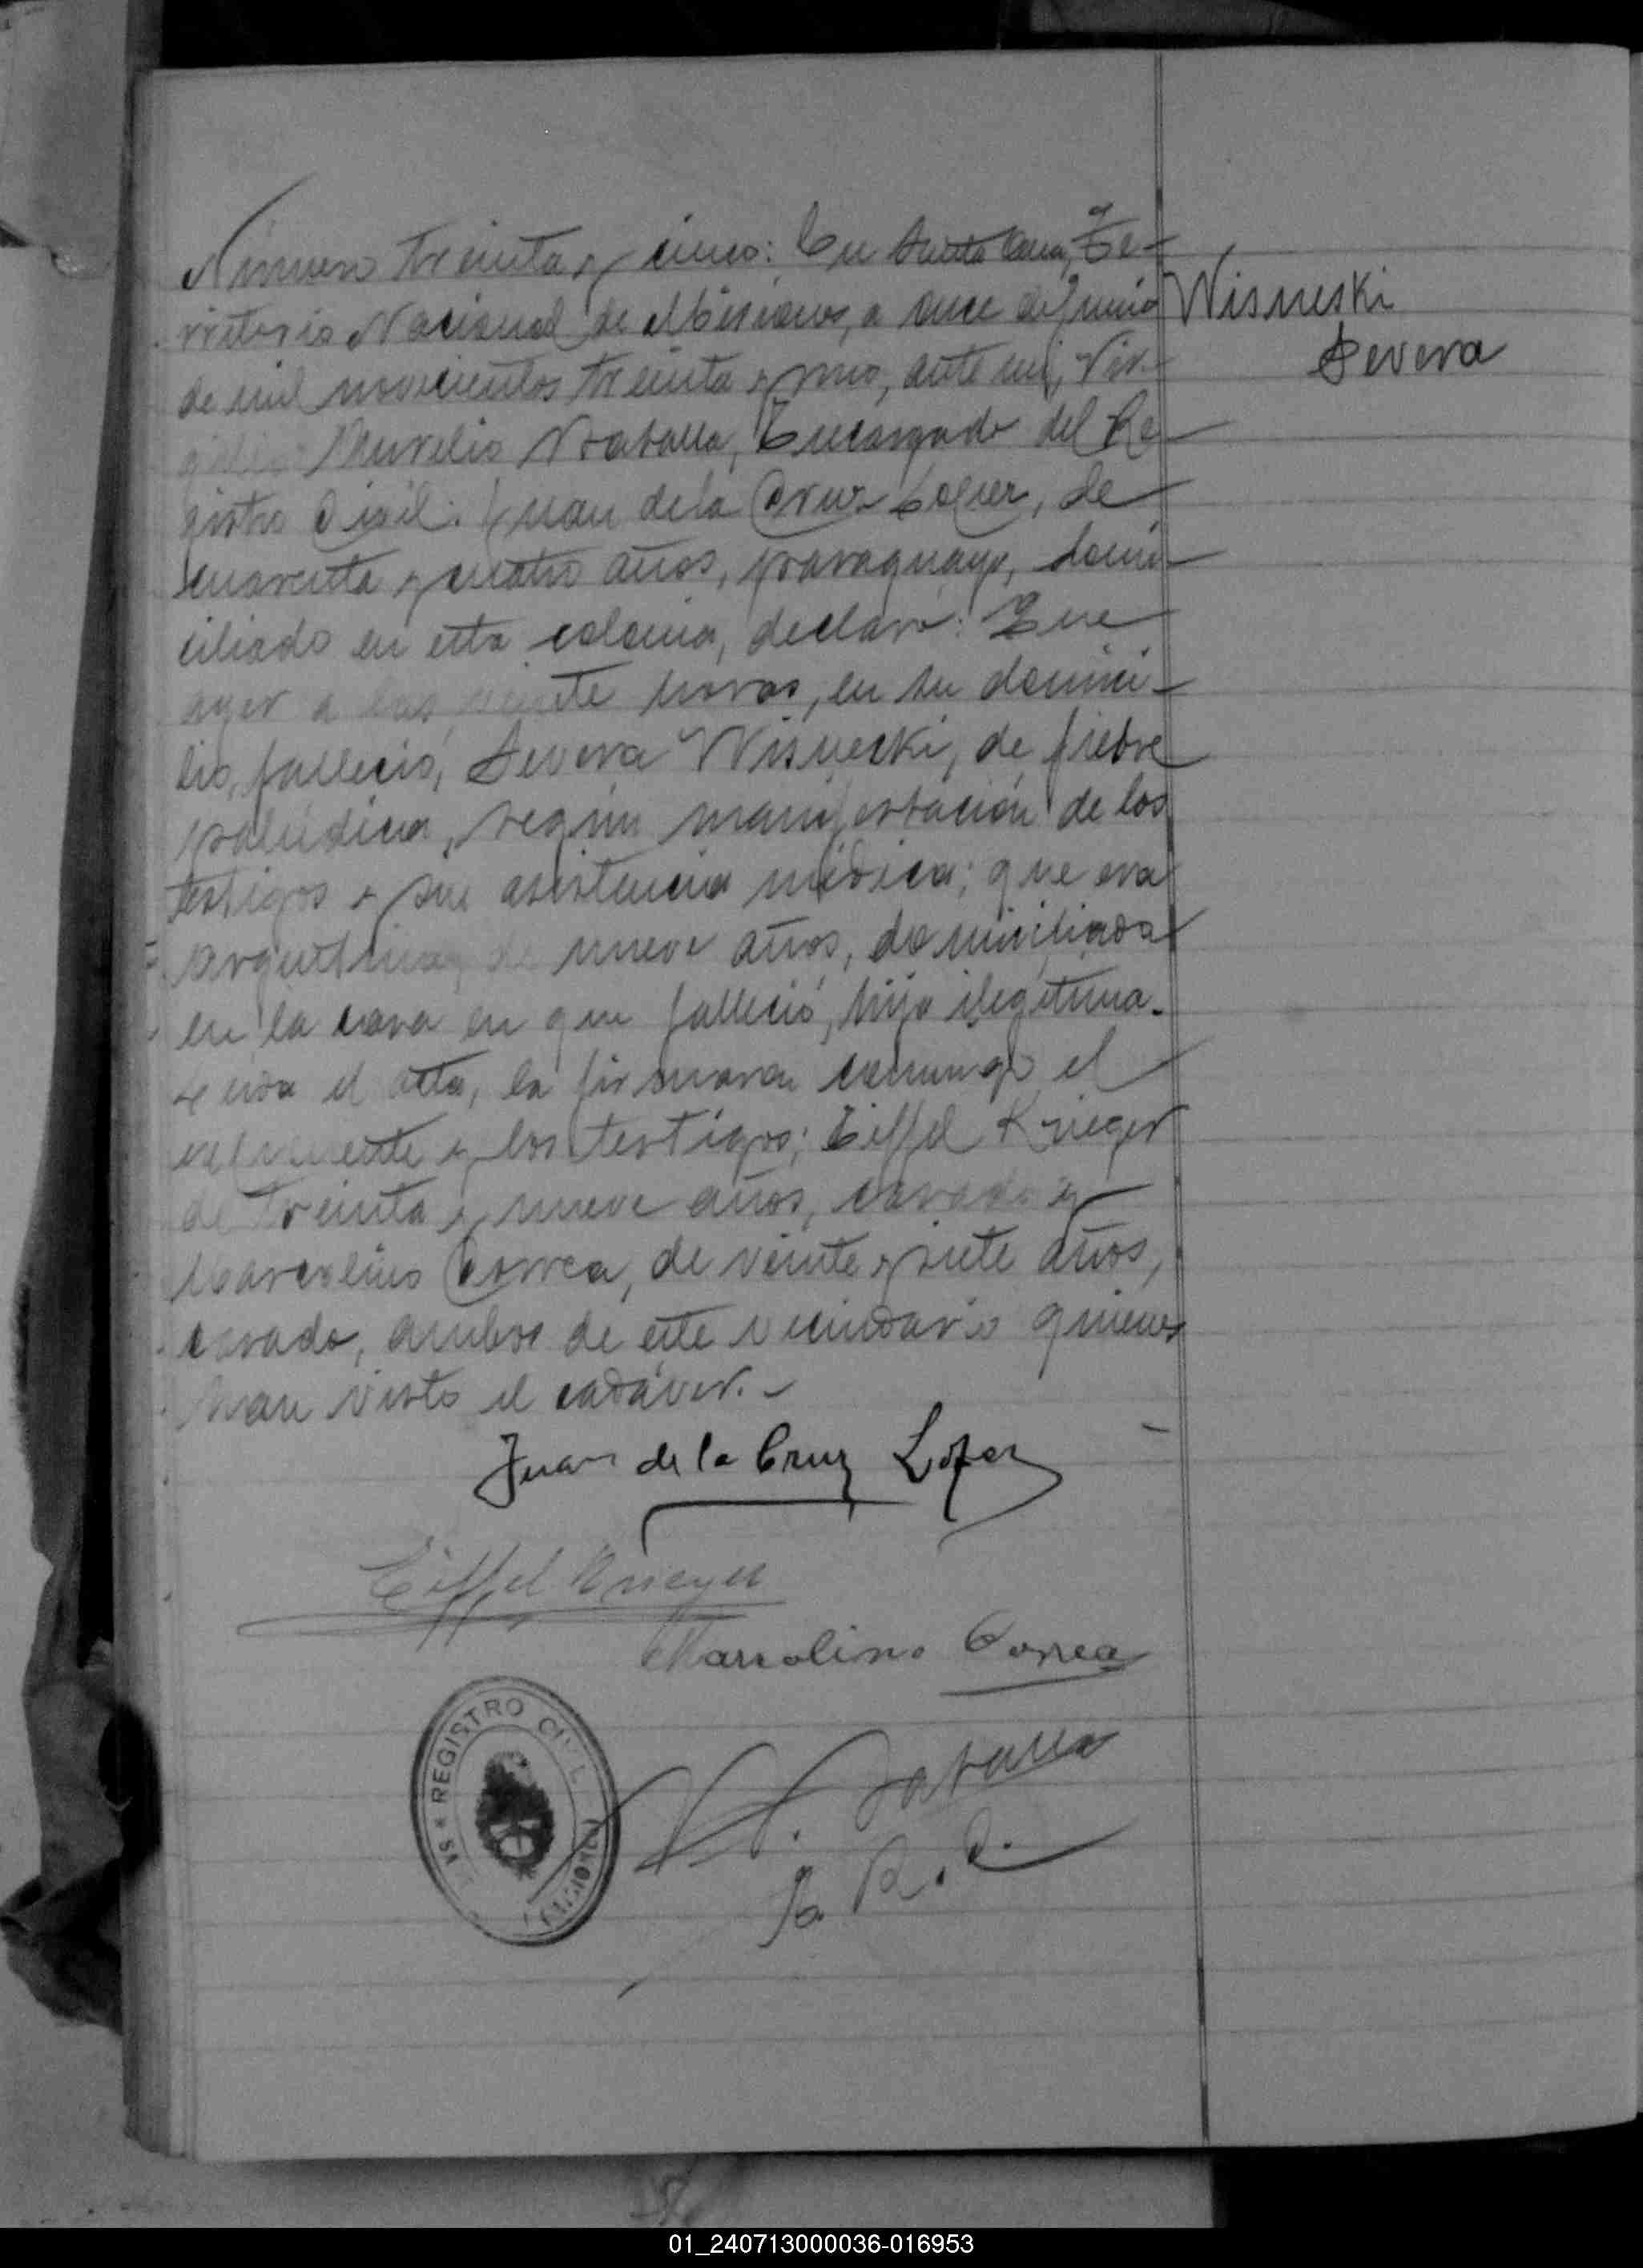 Número treinta y cinco: En Santa Ana, Te-
rritorio Nacional de Misiones, a once de Junio
de mil novecientos treinta y uno, ante mi, Vir-
gilio Aurelio Zaballa, Encargado del Re-
gistro Civil: Juan de la Cruz López, de
cuarenta y cuatro años, paraguayo, domi-
ciliado en esta colonia, declaró: Que
ayer a las veinte horas, en su domici-
lio, falleció, Severa Wisneski, de fiebre
palúdica, según manifestación de los
testigos y sin asistencia médica; que era
argentina, de nueve años, domiciliada
en la casa en que falleció, hija ilegítima.
Leida el acta, la firmaron conmigo el
exponente y los testigos; Eiffel Krieger
de treinta y nueve años, casado y
Marcolino Correa, de veinte y siete años,
casado, ambos de este vecindario quienes
han visto el cadáver.-
Wisneski
Severa
Juan de la Cruz Lopez
Eiffel Krieger
Marcolino Correa
REGISTRO CIVIL
MISIONES
E. R. C.
01_240713000036-016953